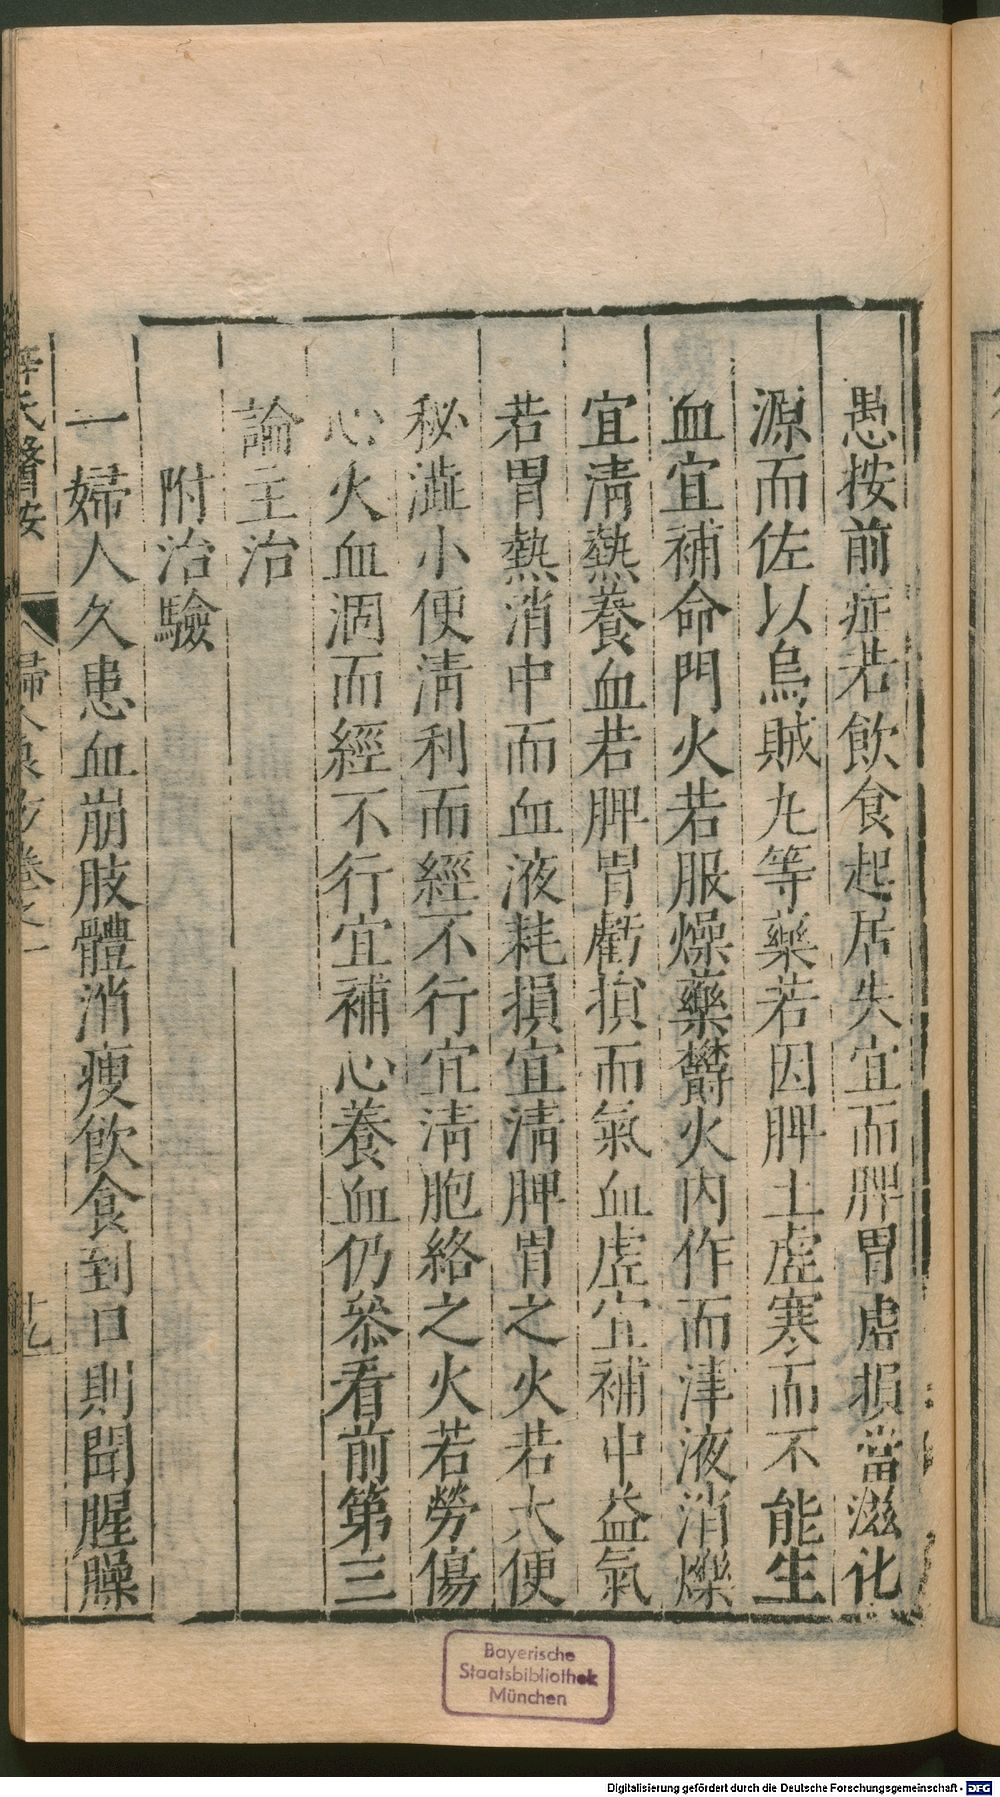 愚按前症若飲食起居失宜而脾胃虛損當滋化
源而佐以烏賊丸等藥若因脾土虛寒而不能生
血宜補命門火若服燥藥欝火内作而津液消爍
宜清熱養血若脾胃虧損而氣血虛宜補中益氣
若胃熱消中而血液耗損宜清脾胃之火若大便
秘澁小便清利而經不行宜清胞絡之火若勞傷
心火血涸而經不行宜補心養血仍叅看前第三
論主治
附治驗
一婦人久患血崩肢體消瘦飲食到口則聞腥臊
薛氏醫按
婦人良方卷之一
Bayerische
Staatsbibliothek
München
Digitalisierung gefördert durch die Deutsche Forschungsgemeinschaft - DFG